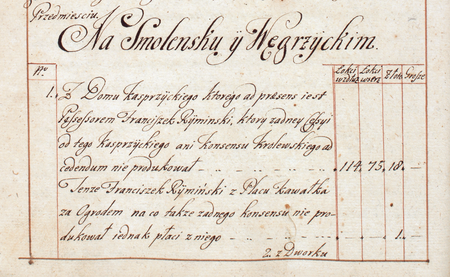 Przedmiesciu.
Na Smolensku ÿ Węgrzÿckim.
Nro Łokci wzdłuż Łokci wszerz Złote Grosze
1. Z Domu Kasprzÿckiego ktorego ad præsens iest
Possessorem Franciszek Rÿminski, ktorÿ zadneÿ Cessÿi
od tego Kasprzÿckiego ani Konsensu Krolewskiego ad
cedendum nie produkował 114. 75. 18. —
Tenze Franciszek Rÿmiński z Placu kawałka
za Ogrodem na co takze zadnego konsensu nie pro-
dukował iednak płaci z niego 1. —
2. z Dworku